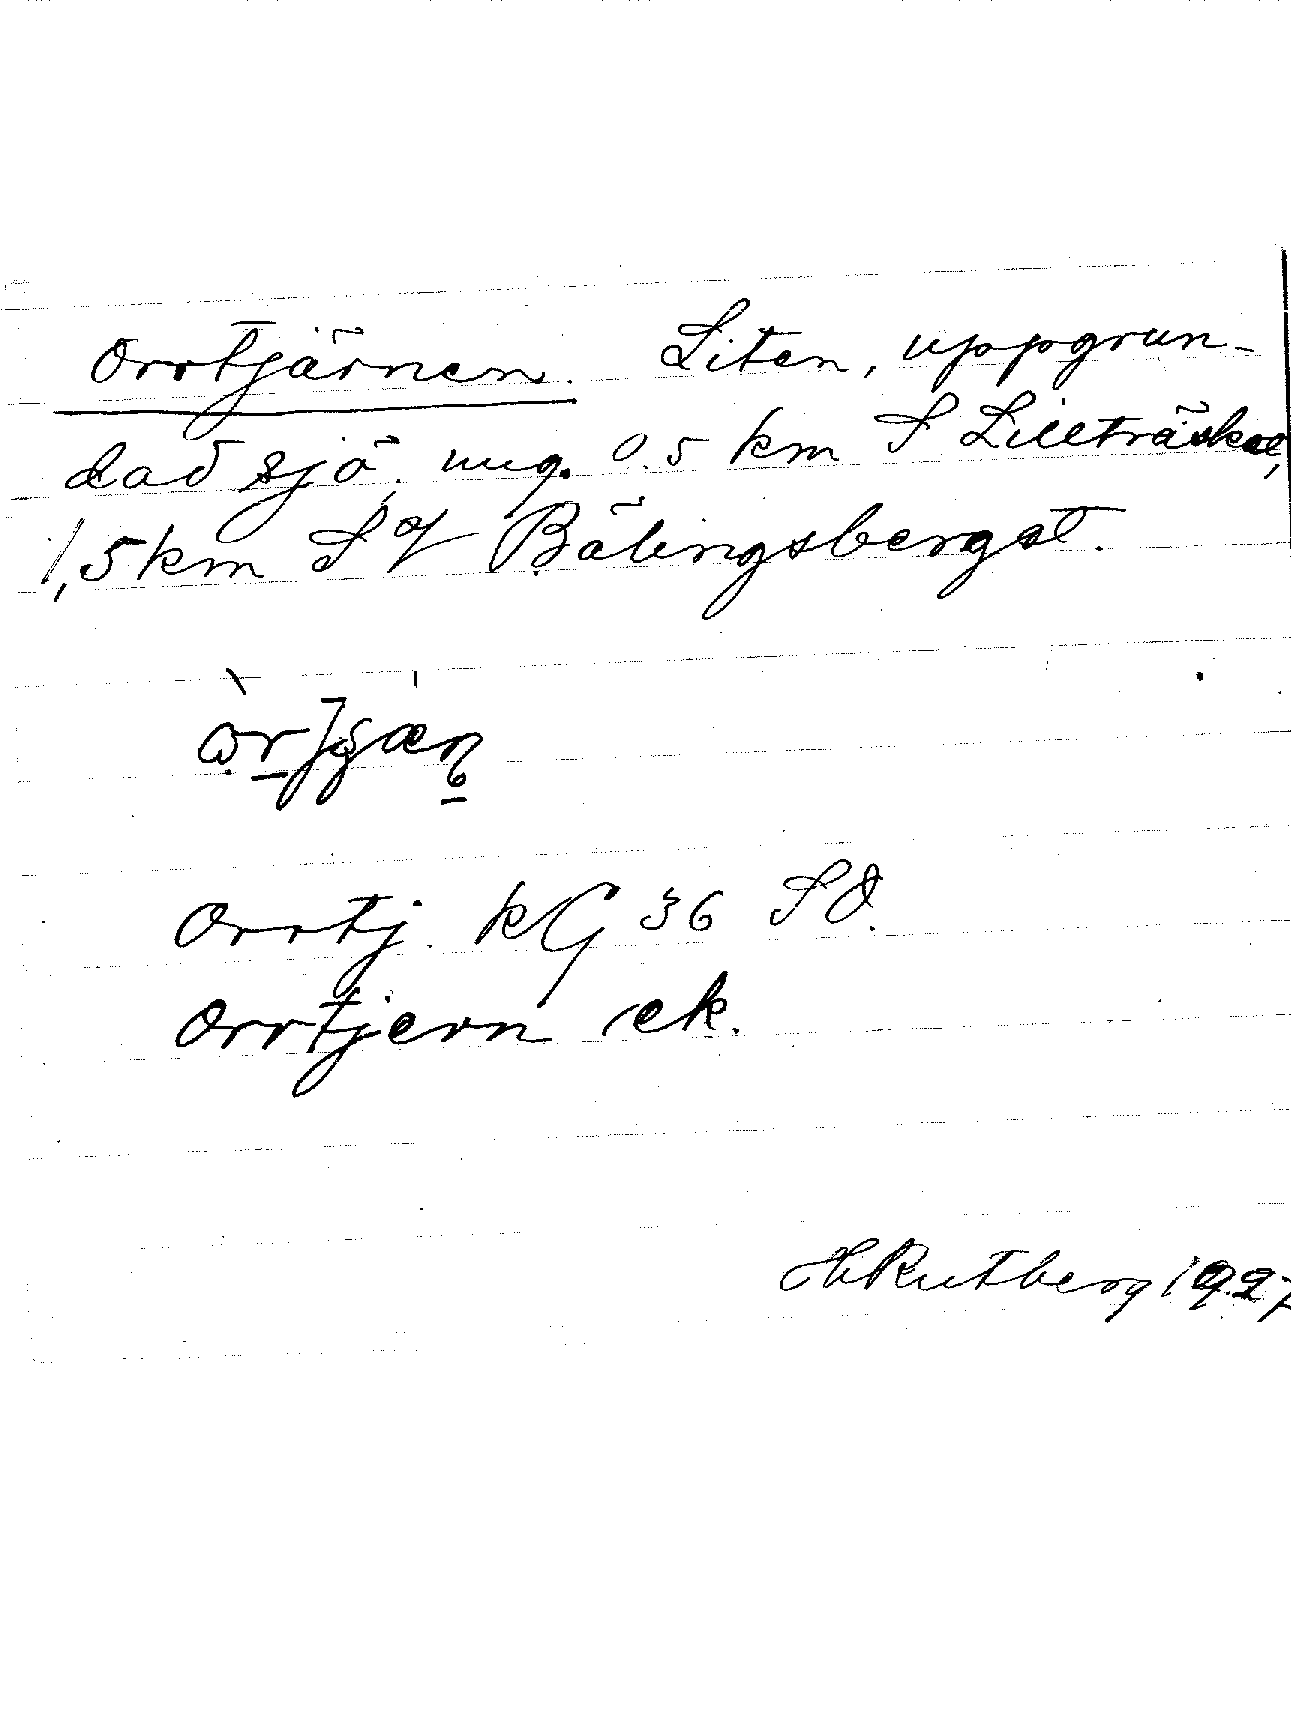 Orrtjärnen. Liten, uppgrun-
dad sjö, ung. 0.5 km S Lillträsket,
1,5 km S of Bälingsbergst.
Orrtj. kG 36 SO.
Orrtjern ek.
H Rutberg 1927